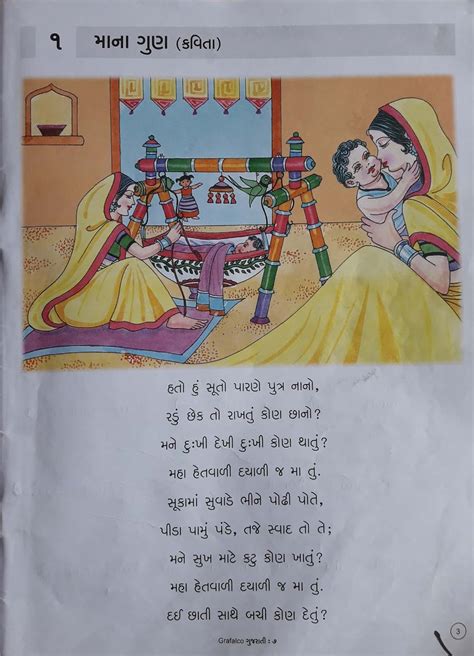 ૧ માના ગુણ (કવિતા)
હતો હું સૂતો પારણે પુત્ર નાનો,
રડું છેક તો રાખતું કોણ છાનો?
મને દુઃખી દેખી દુઃખી કોણ થાતું?
મહા હેતવાળી દયાળી જ મા તું.
સૂકામાં સુવાડે ભીને પોઢી પોતે,
પીડા પામું પંડે, તજે સ્વાદ તો તે;
મને સુખ માટે કટુ કોણ ખાતું?
મહા હેતવાળી દયાળી જ મા તું.
દઈ છાતી સાથે બચી કોણ દેતું?
Grafalco ગુજરાતી : ૭
3